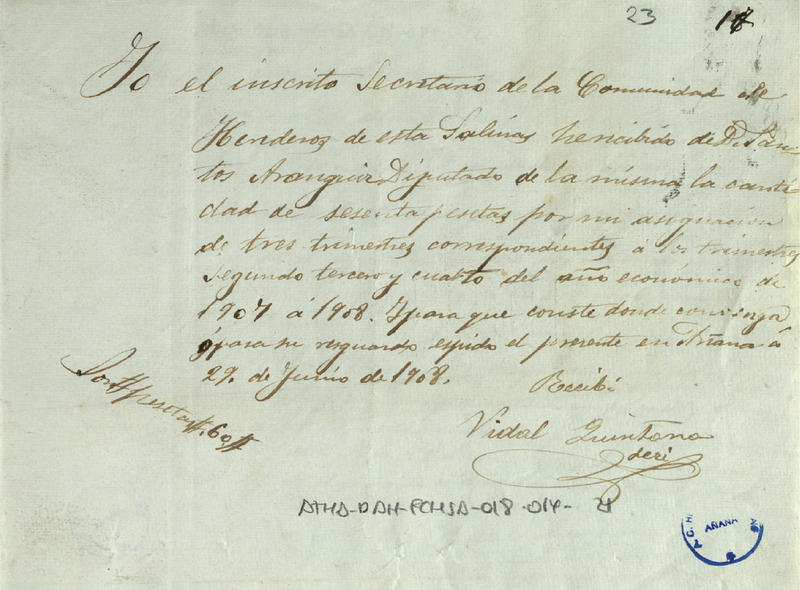 23 17
Yo el inscrito Secretario de la Comunidad de
Herederos de esta Salinas he recibido de D. San-
tos Aranguiz Diputado de la misma la canti-
dad de sesenta pesetas por mi asignacion
de tres trimestres correspondientes á los trimestres
segundo tercero y cuarto del año económico de
1907 á 1908. Y para que conste donde convenga
y para su resguardo espido el presente en Añana á
29 de Junio de 1908.
Recibí
Son # pesetas # 60 #
Vidal Quintana
ATHA-DAH-FCHSA-018-014-
AÑANA